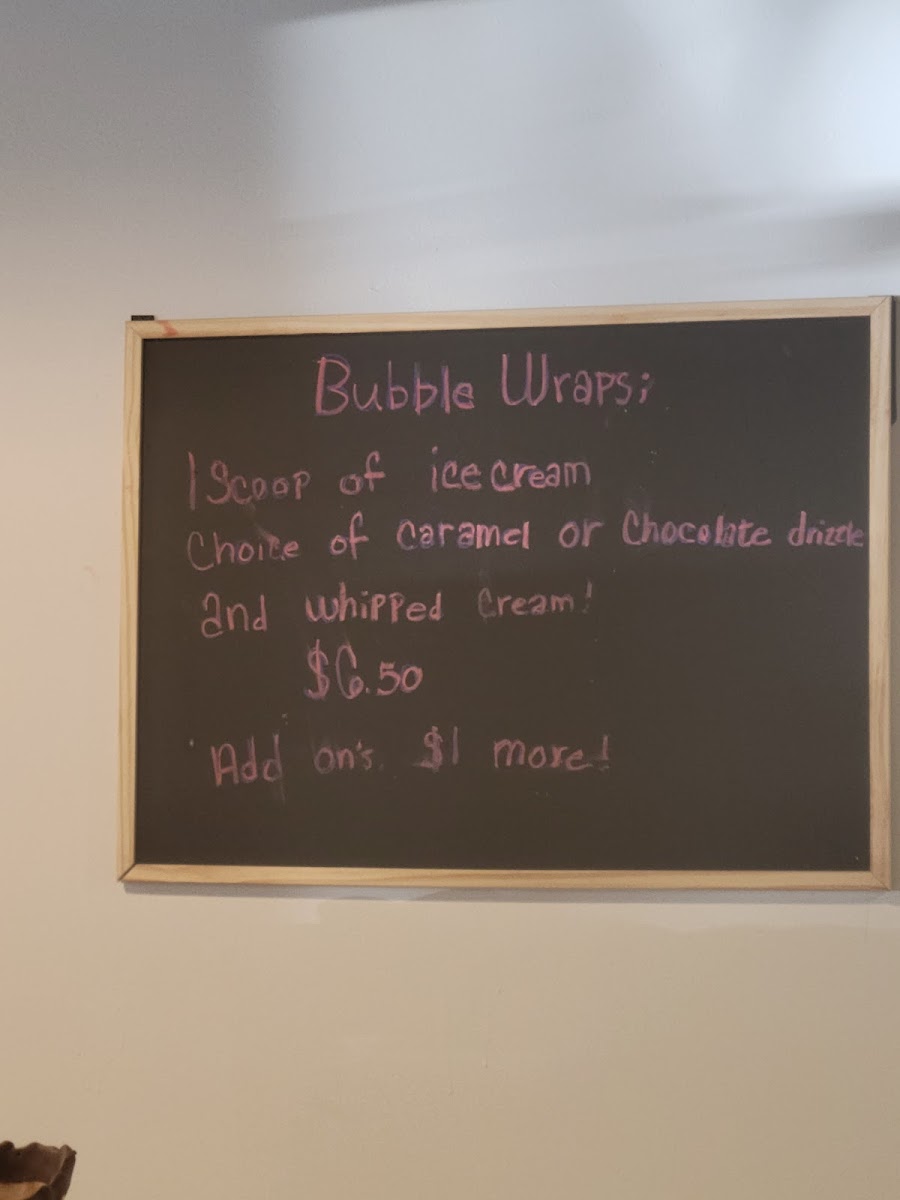 Bubble Wraps;
1 Scoop of ice cream
Choice of caramel or Chocolate drizzle
and whipped cream!
$6.50
Add on's. $1 more!